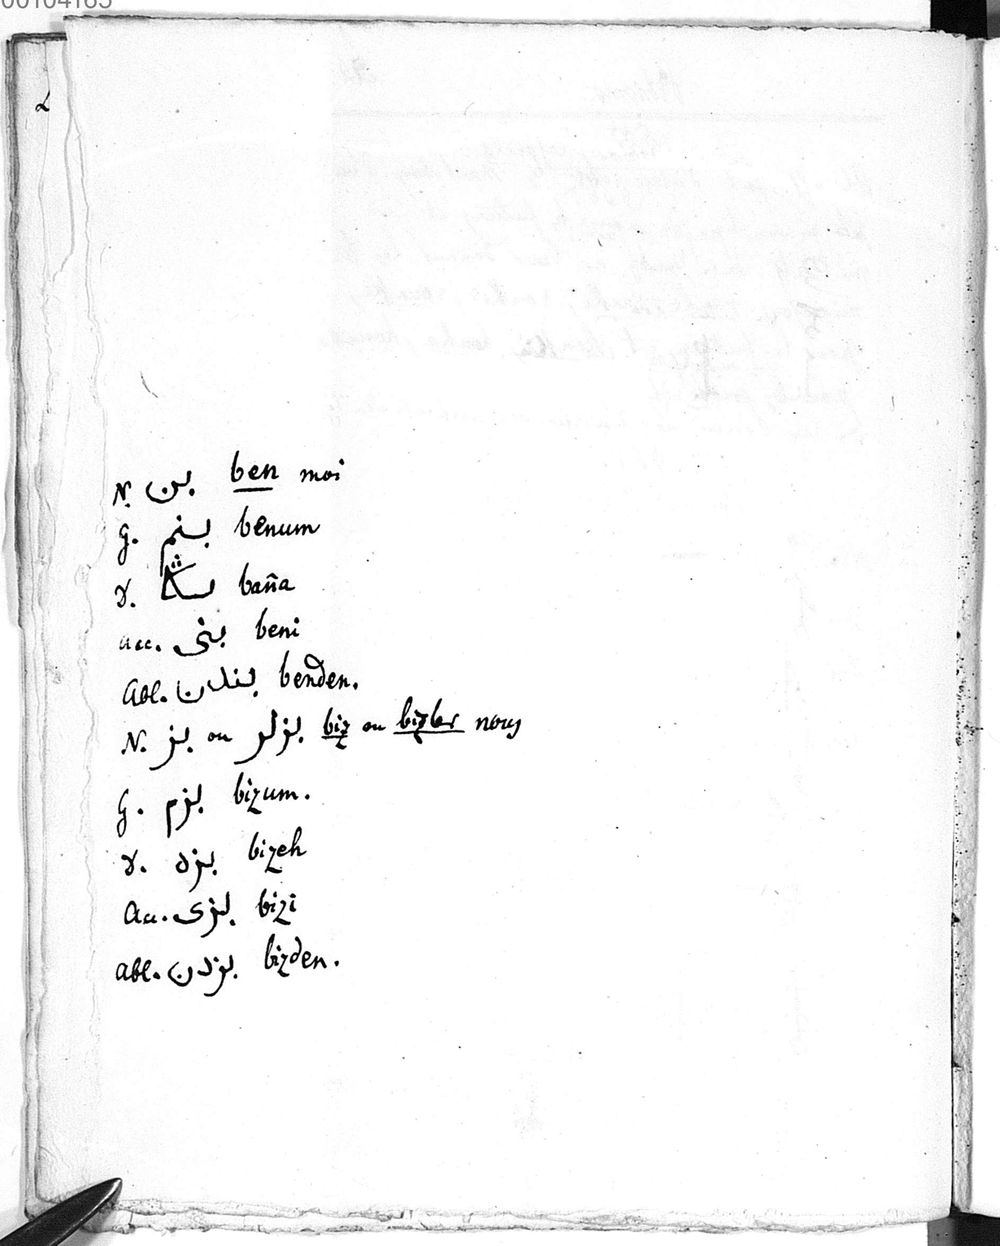 N. بن ben moi
G. بنم benum
D. بڭا baña
acc. بنى beni
Abl. بندن benden.
N. بز ou بزلر biz ou bizler nous
G. بزم bizum.
D. بزه bizeh
Acc. بزى bizi
abl. بزدن bizden.